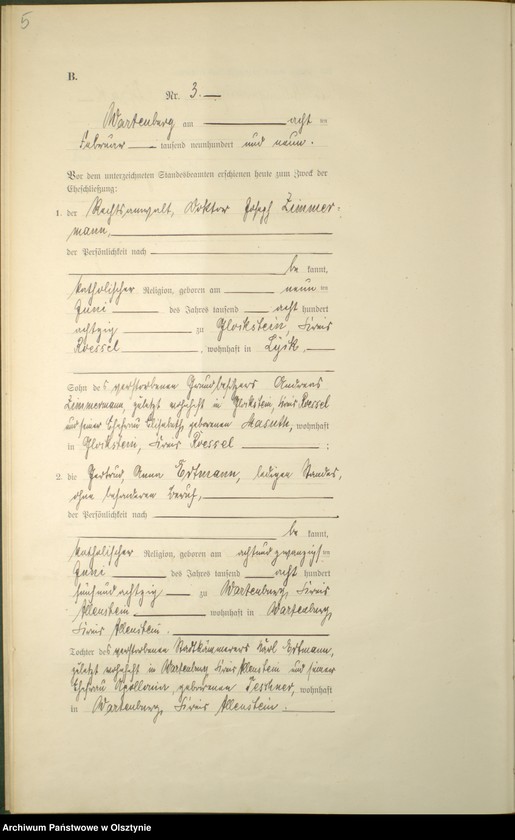 5
B.
Nr. 3.
Wartenburg am acht ten
Februar tausend neunhundert und neun.
Vor dem unterzeichneten Standesbeamten erschienen heute zum Zweck der
Eheschließung:
1. der Rechtsanwalt, Doktor Joseph Zimmer-
mann,
der Persönlichkeit nach
be kannt,
katholischer Religion, geboren am neun ten
Juni des Jahres tausend acht hundert
achtzig zu Glockstein, Kreis
Roessel, wohnhaft in Lyck,
Sohn des verstorbenen Grundbesitzers Andreas
Zimmermann, zuletzt wohnhaft in Glockstein, Kreis Roessel
und seiner Ehefrau Elisabeth, geborenen Masuth, wohnhaft
in Glockstein, Kreis Roessel ;
2. die Gertrud, Anna Ertmann, ledigen Standes,
ohne besonderen Beruf,
der Persönlichkeit nach
be kannt,
katholischer Religion, geboren am achtundzwanzigs ten
Juni des Jahres tausend acht hundert
fünfundachtzig zu Wartenburg, Kreis
Allenstein wohnhaft in Wartenburg,
Kreis Allenstein.
Tochter des verstorbenen Stadtkämmerers Karl Ertmann,
zuletzt wohnhaft in Wartenburg Kreis Allenstein und seiner
Ehefrau Apollonia, geborenen Teschner, wohnhaft
in Wartenburg, Kreis Allenstein.
Archiwum Państwowe w Olsztynie